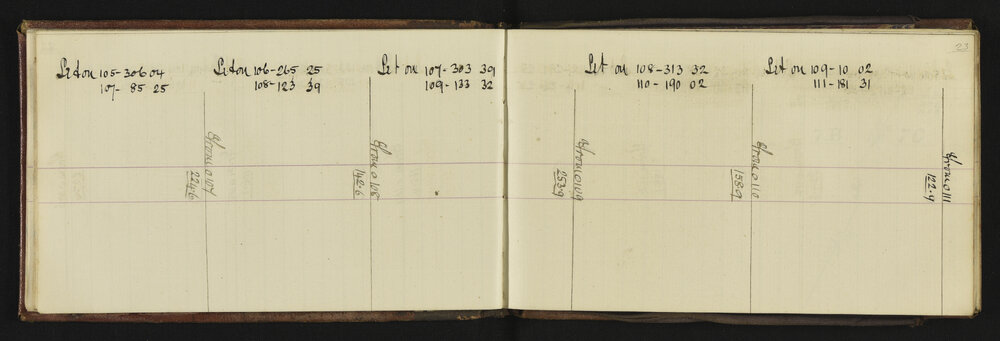 23
Set on 105-306 04
107-85 25
Set on 106-265 25
108-123 39
Set on 107-303 39
109-133 32
Set on 108-313 32
110-190 02
Set on 109-10 02
111-181 31
107
224.6
108
142.6
109
253.9
110
158.9
111
122.9